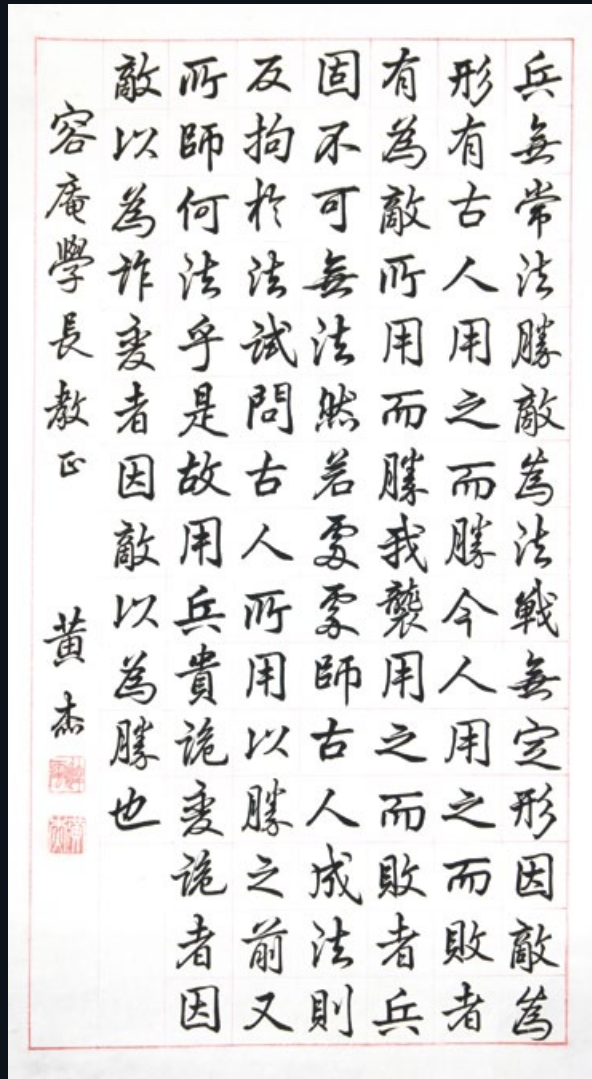 兵無常法勝敵為法戰無定形因敵為
形有古人用之而勝今人用之而敗者
有為敵所用而勝我襲用之而敗者兵
固不可無法然若處處師古人成法則
反拘於法試問古人所用以勝之前又
所師何法乎是故用兵貴詭變詭者因
敵以為詐變者因敵以為勝也
容庵學長教正
黃杰